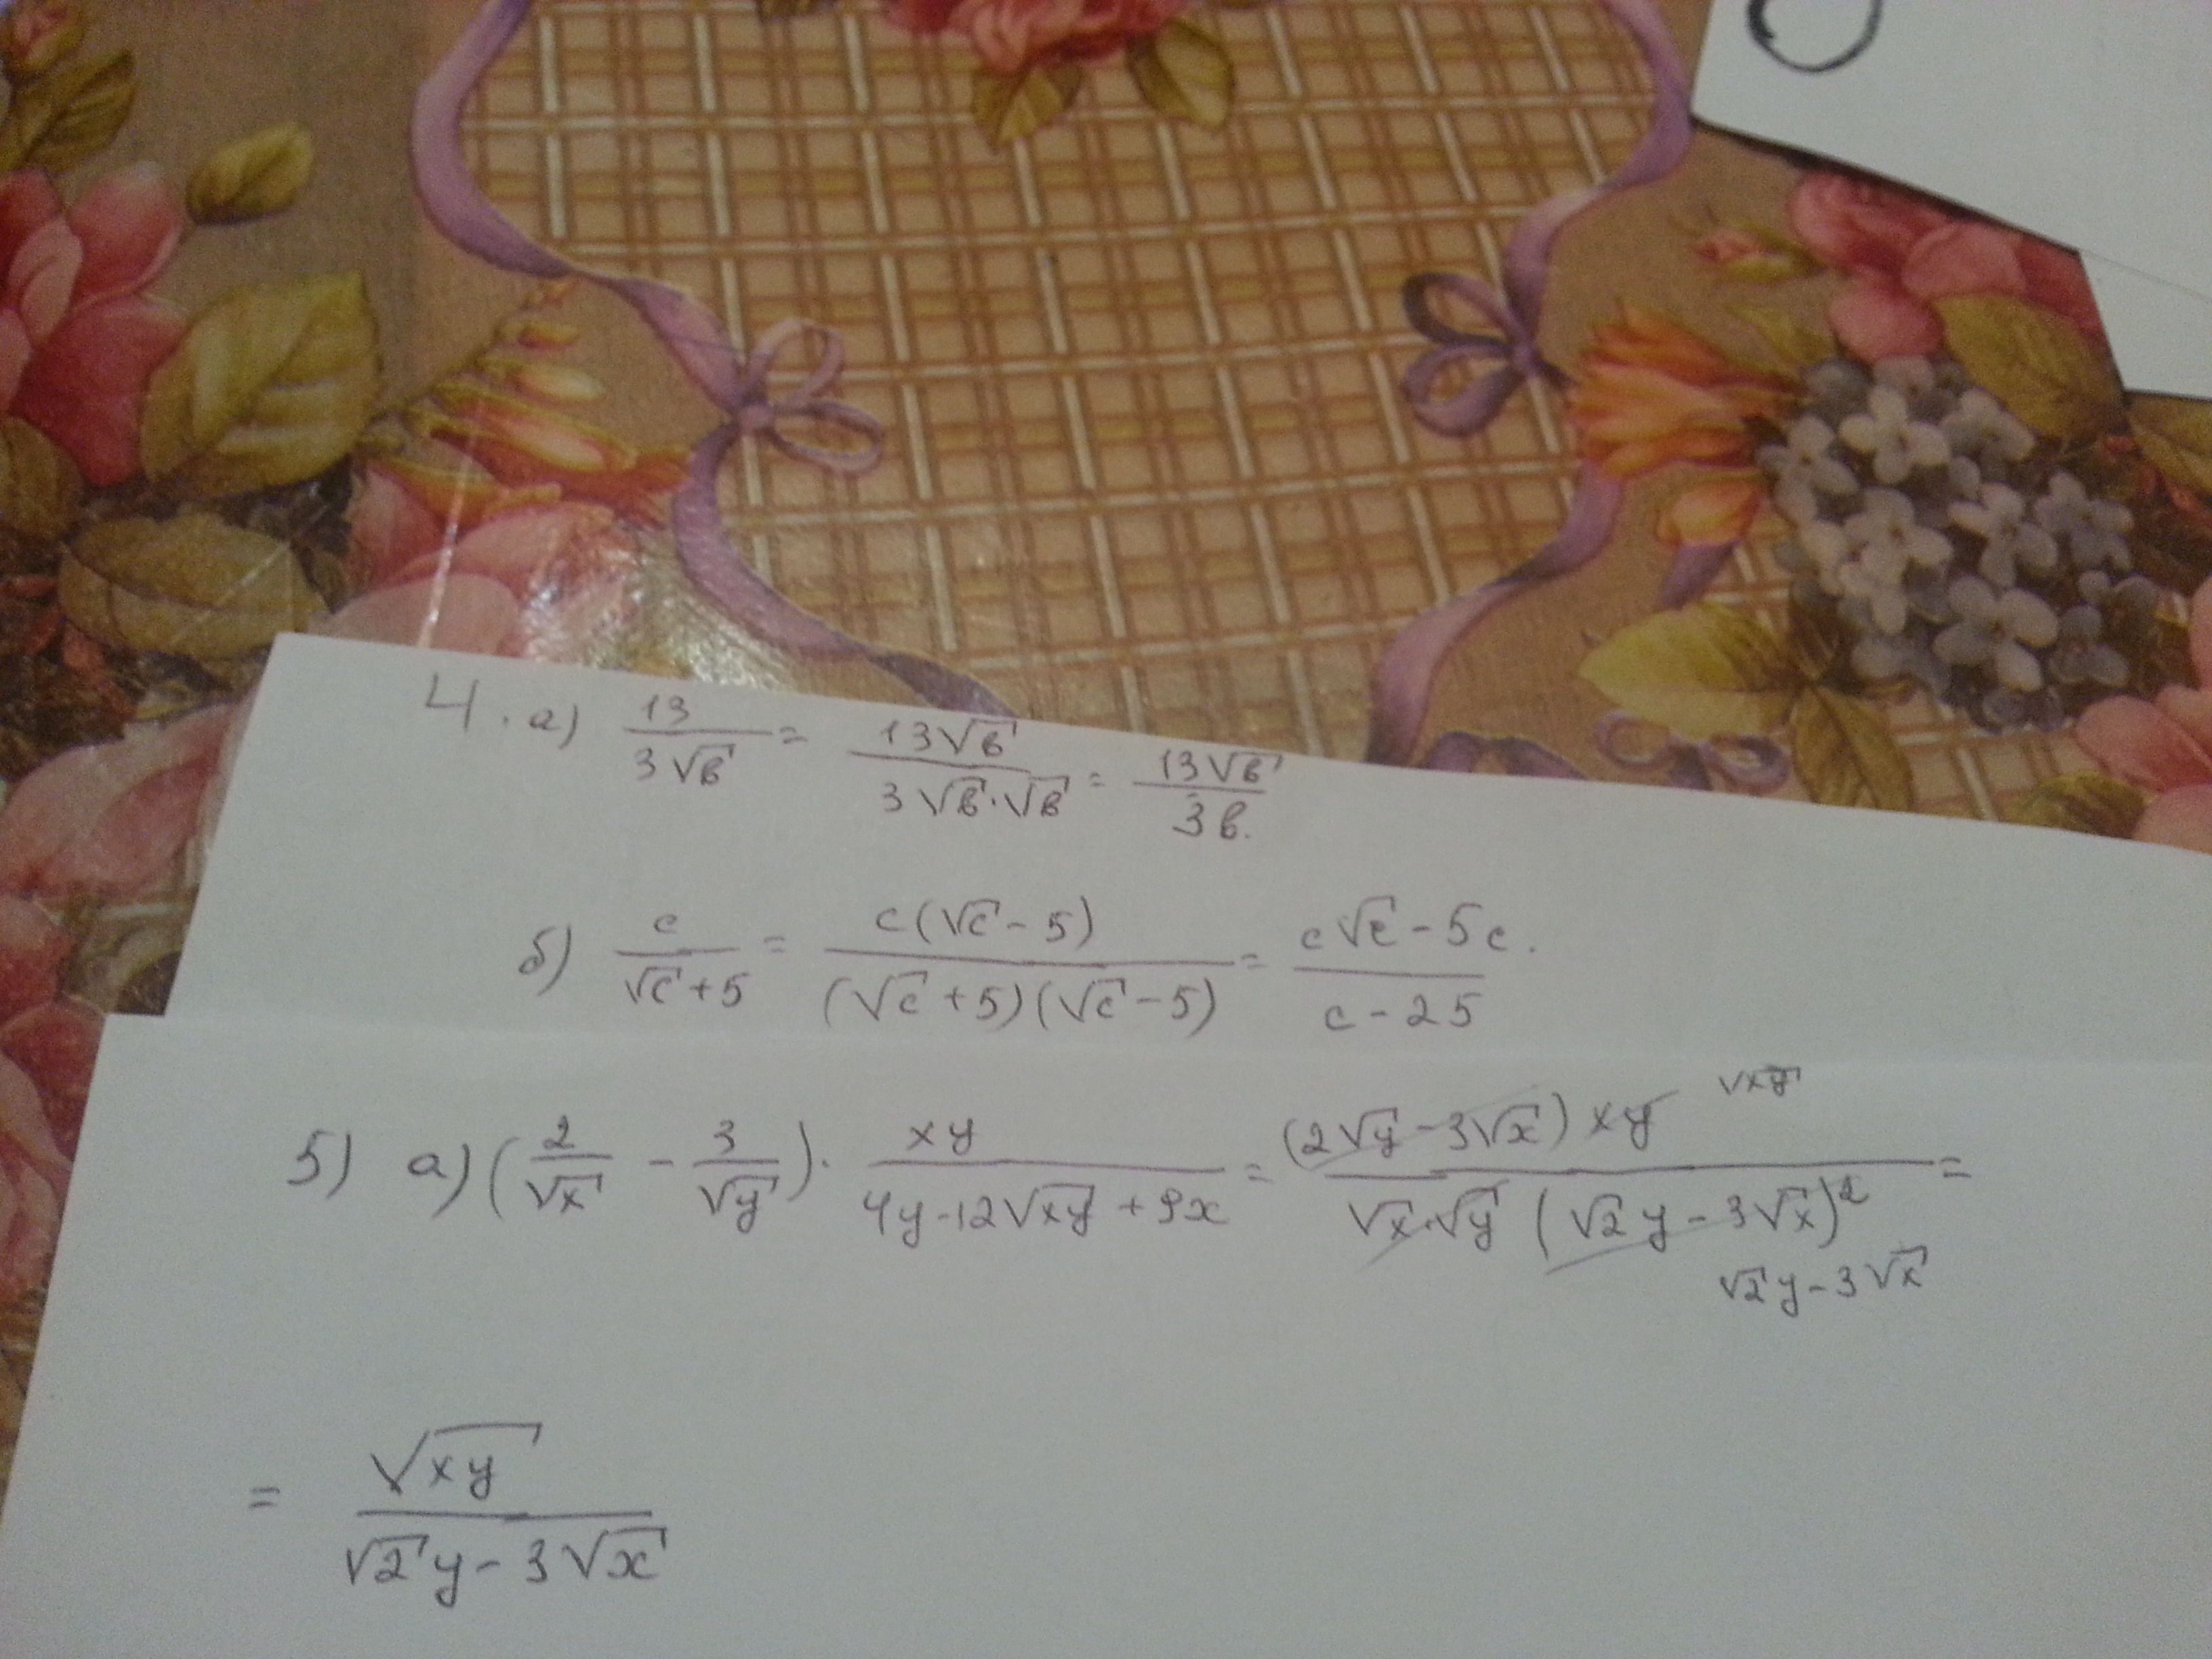 4. а) 13/(3√в) = 13√в/(3√в·√в) = 13√в/(3в).
б) c/(√c+5) = c(√c-5)/((√c+5)(√c-5)) = (c√c-5c)/(c-25).
5) а) (2/√x - 3/√y) · xy/(4y-12√xy+9x) = (2√y-3√x)xy √xy/(√x·√y(√2y-3√x)² √2y-3√x) =
= √xy/(√2y-3√x)